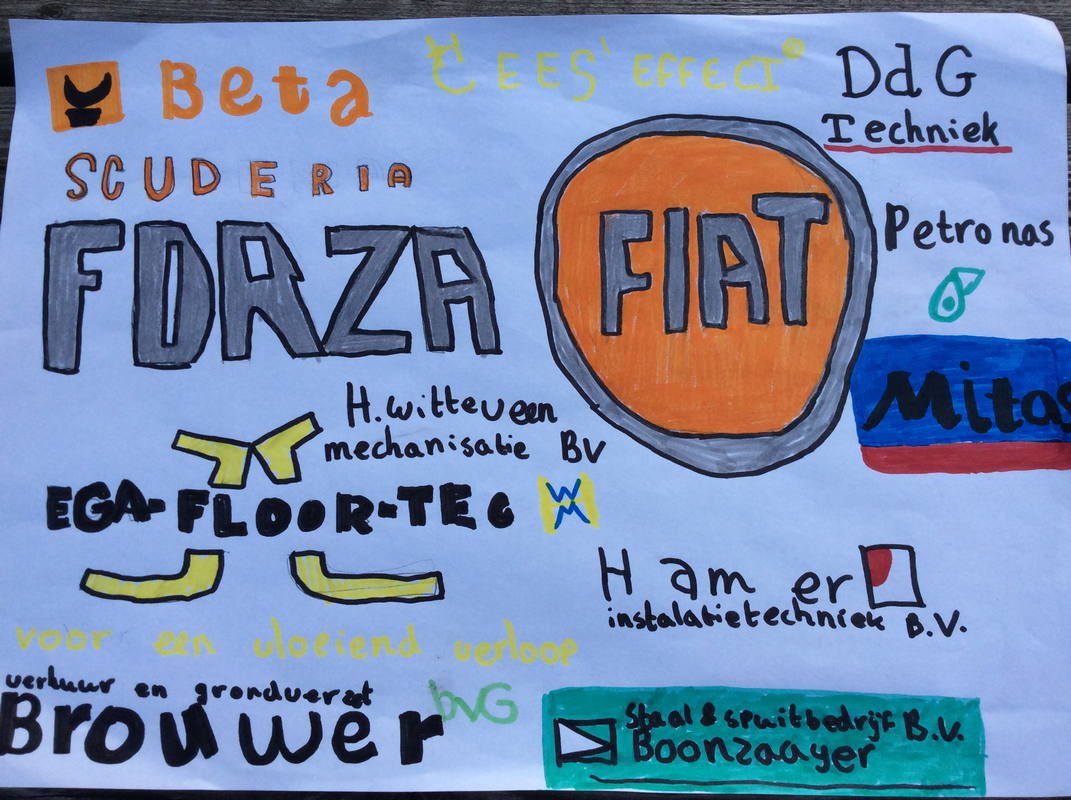 Beta
CEES' EFFECT
DdG
Techniek
SCUDERIA
FORZA
FIAT
Petronas
Mitas
H.witteveen
mechanisatie BV
EGA-FLOOR-TEC
WM
Hamer
instalatietechniek B.V.
voor een vloeiend verloop
verhuur en grondverzet
Brouwer
bvG
Staal & spuitbedrijf B.V.
Boonzaayer